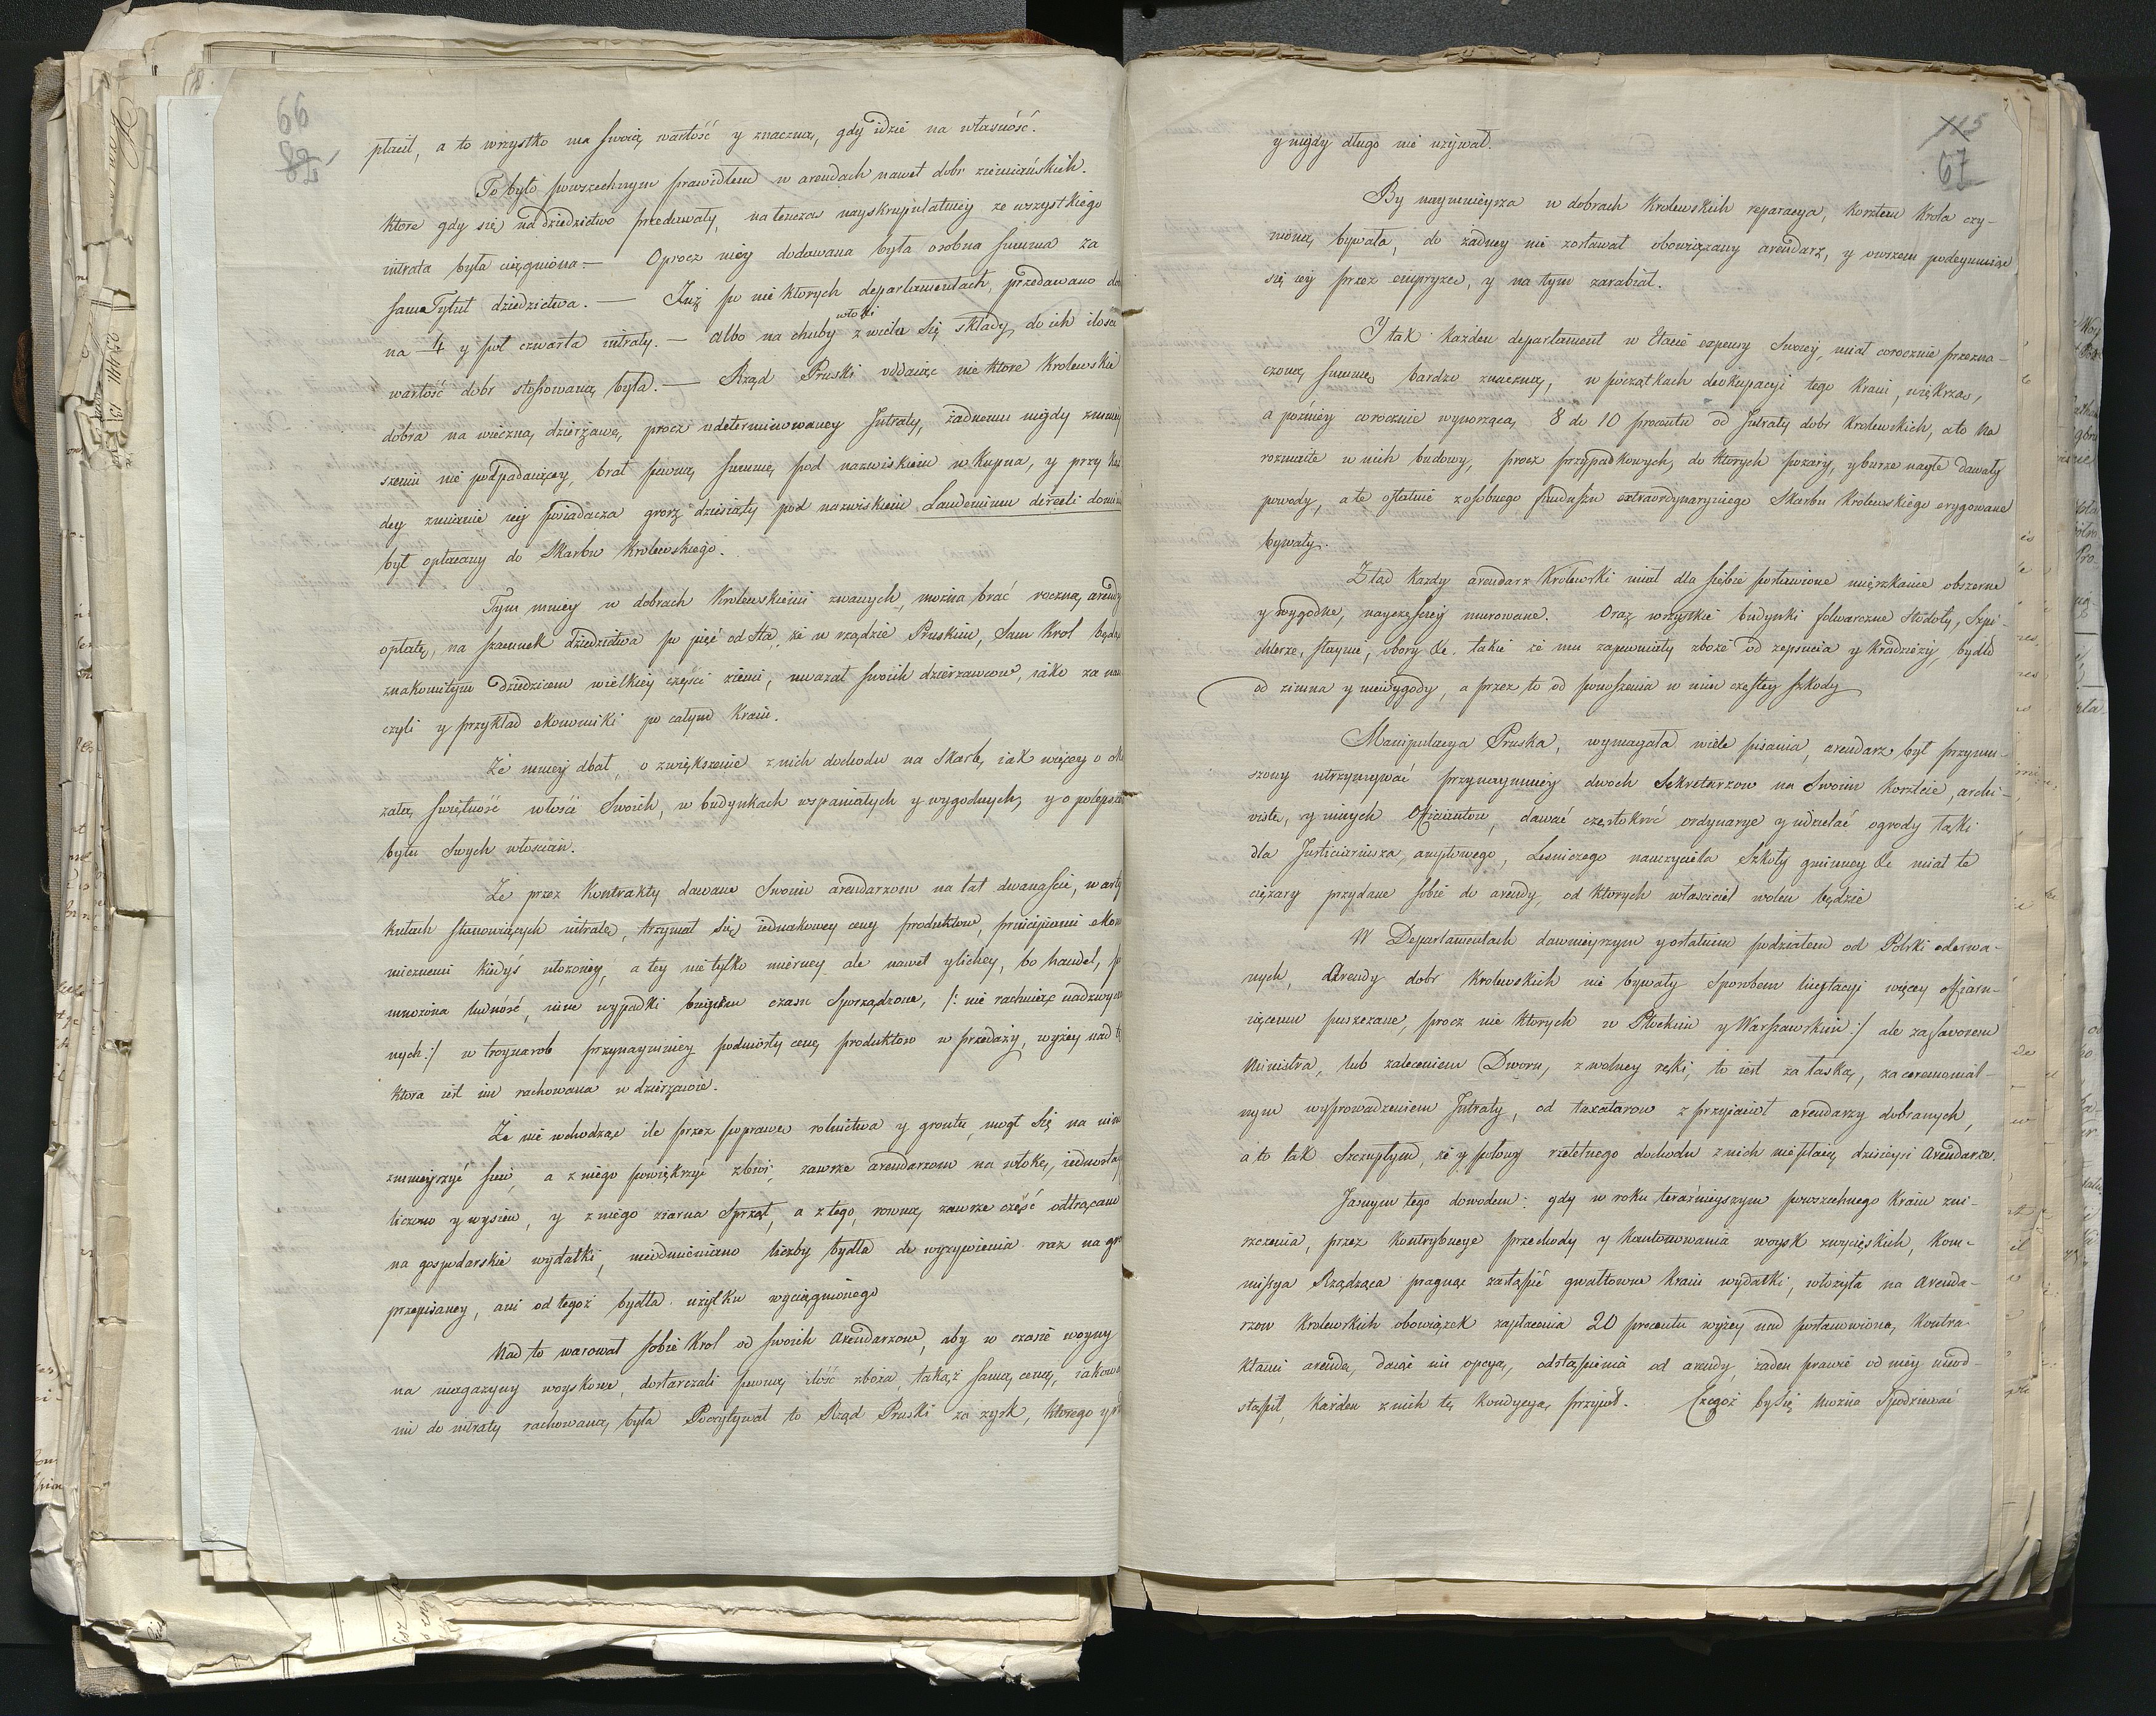 66
płacił, a to wszystko ma swoią wartość y znaczną, gdy idzie na własność.
To było powszechnym prawidłem w arendach nawet dobr ziemiańskich.
ktore gdy się na dziedzictwo przedawały, natenczas nayskrupulatniey ze wszystkiego
intrata była ciągniona. — Oprocz niey dodawana była osobna summa za
sam Tytuł dziedzictwa. — Już po nie ktorych departamentach, przedawano
na 4 y puł czwarta intraty. — albo na chuby włoki z wielu się składy, do ich
wartość dobr stosowaną była. — Rząd Pruski oddaiąc nie ktore Krolewskie
dobra na wieczną dzierżawę, procz udeterminowaney Intraty, żadnemu nigdy
szeniu nie podpadaiącey, brał pewną summę pod nazwiskiem wkupna, y przy
dey zmianie iey posiadacza grosz dziesiąty pod nazwiskiem Laudemium directi
był opłacany do Skarbu Krolewskiego.
Tym mniey w dobrach Krolewskiemi zwanych, można brać roczną
opłatę, na szacunek dziedzictwa po pięć od sta, że w rządzie Pruskim, Sam Krol
znakomitym dziedzicem wielkiey części ziemi, uważał swoich dzierżawcow, iako za
czyli y przykład ekonomiki po całym Kraiu.
Że mniey dbał o zwiększenie z nich dochodu na Skarb, iak więcey o
załą świetność włości Swoich, w budynkach wspaniałych y wygodnych, y o
bytu Swych włościan.
Że przez Kontrakty dawane Swoim arendarzom na lat dwanaście, w
kułach stanowiących intratę, trzymał się iednakowey ceny produktow,
micznemi kiedyś ułożoney, a tey nie tylko mierney ale nawet y lichey, bo handel,
mnożona ludność, inne wypadki biegiem czasu sporządzone, /: nie rachuiąc
nych :/ w troynasob przynaymniey podniosły cenę produktow w przedaży, wyżey nad
ktora iest im rachowana w dzierżawie.
Że nie wchodząc ile przez poprawę rolnictwa y gruntu, mogł się na nim
zmnieyszyć siew, a z niego powiększyć zbiór, zawsze arendarzom na włokę,
liczono y wysiew, y z niego ziarna Sprzęt, a z tego, rowną zawsze część
na gospodarskie wydatki, nieodmieniano liczby bydła do wyżywienia raz na
przepisaney, ani od tegoż bydła użytku wyciągnionego
Nad to warował sobie Krol od swoich Arendarzow, aby w czasie woyny
na magazyny woyskowe, dostarczali pewną ilość zboża, takąż samą ceną,
im do intraty rachowaną była Poczytywał to Rząd Pruski za zysk, ktorego
115
67
y nigdy długo nie używał.
By naymnieysza w dobrach Krolewskich reparacya, kosztem Krola czy-
nioną bywała, do żadney nie zostawał obowiązany arendarz, y owszem podeymuiąc
się iey przez empryze, y na tym zarabiał.
I tak każden departament w Etacie expensy Swoiey, miał corocznie przezna-
czoną summę bardzo znaczną, w początkach deokupacyi tego Kraiu, większą,
a pozniey corocznie wynoszącą 8 do 10 procentu od Intraty dobr Krolewskich, a to na
rozmaite w nich budowy, procz przypadkowych, do ktorych pożary, y burze nagłe dawały
powody, a te ostatnie z osobnego funduszu extraordynaryinego Skarbu Krolewskiego erygowane
bywały.
Ztad każdy arendarz Krolewski miał dla siebie postawione mięszkanie obszerne
y wygodne, nayczęściey murowane. Oraz wszystkie budynki folwarczne Stodoły, Szpi-
chlerze, staynie, obory &c. takie że mu zapewniały zboże od zepsucia y Kradzieży, bydło
od zimna y niewygody, a przez to od ponoszenia w nim częstey szkody
Manipulacya Pruska, wymagała wiele pisania, arendarz był przymu-
szony utrzymywać przynaymniey dwoch Sekretarzow na Swoim koszcie, archi-
wistę, y innych Officiantow, dawać częstokroć ordynarye y udzielać ogrody łąki
dla Justiciariusza, Leśniczego nauczyciela Szkoły gminney &c miał te
ciężary przydane sobie do arendy, od ktorych właściciel wolen będzie
W Departamentach dawnieyszym y ostatnim podziałem od Polski oderwa-
nych, Arendy dobr Krolewskich nie bywały sposobem licytacyi więcey offiaru-
iącemu puszczane, procz nie ktorych w Płockim y Warszawskim :/ ale za faworem
Ministra, lub zaleceniem Dworu, z wolney ręki, to iest za łaską, za ceremonial-
nym wyprowadzeniem Intraty, od taxatorow z przyiacioł arendarzy dobranych,
a to tak Szczupłym, że y połowy rzetelnego dochodu z nich niepłacą dzisieysi Arendarze.
Jasnym tego dowodem: gdy w roku teraźnieyszym powszechnego Kraiu zni-
szczenia, przez kontrybucye przechody y kantonowania woysk zwycięskich, Kom-
missya Rządząca pragnąc zastąpić gwałtowne Kraiu wydatki, włożyła na Arenda-
rzow Krolewskich obowiązek zapłacenia 20 procentu wyżey nad postanowioną Kontra-
ktami arendę, daiąc im opcyą, odstąpienia od arendy, żaden prawie od niey nieod-
stąpił, każden z nich tę kondycyą przyioł. Czegoż by się można Spodziewać